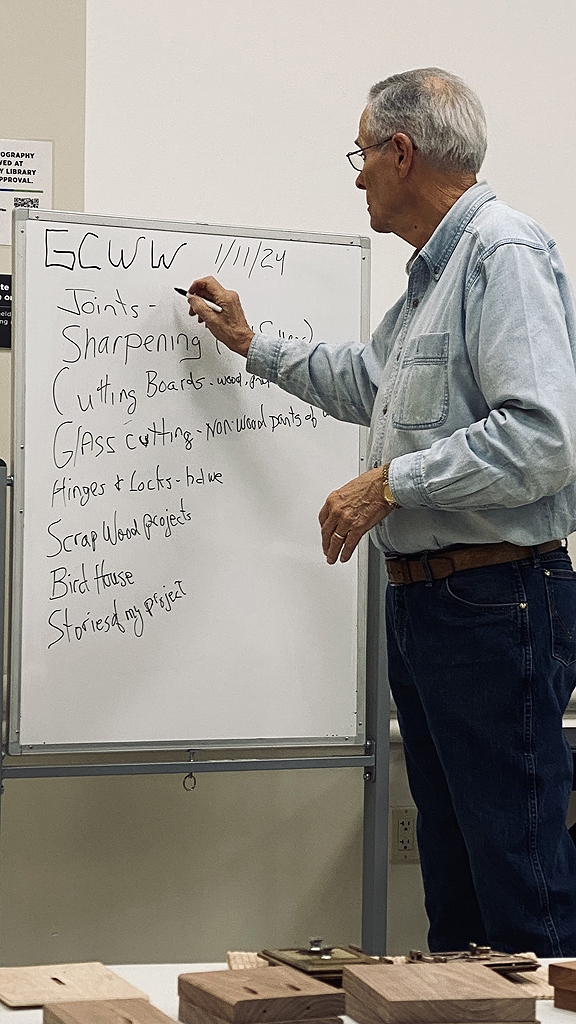 OGRAPHY
VED AT
Y LIBRARY
PPROVAL.
GCWW 1/11/24
Joints -
Sharpening (
Cutting Boards - wood,
Glass cutting - Non-wood parts of
Hinges & Locks - hdwe
Scrap Wood projects
Bird House
Stories of my project